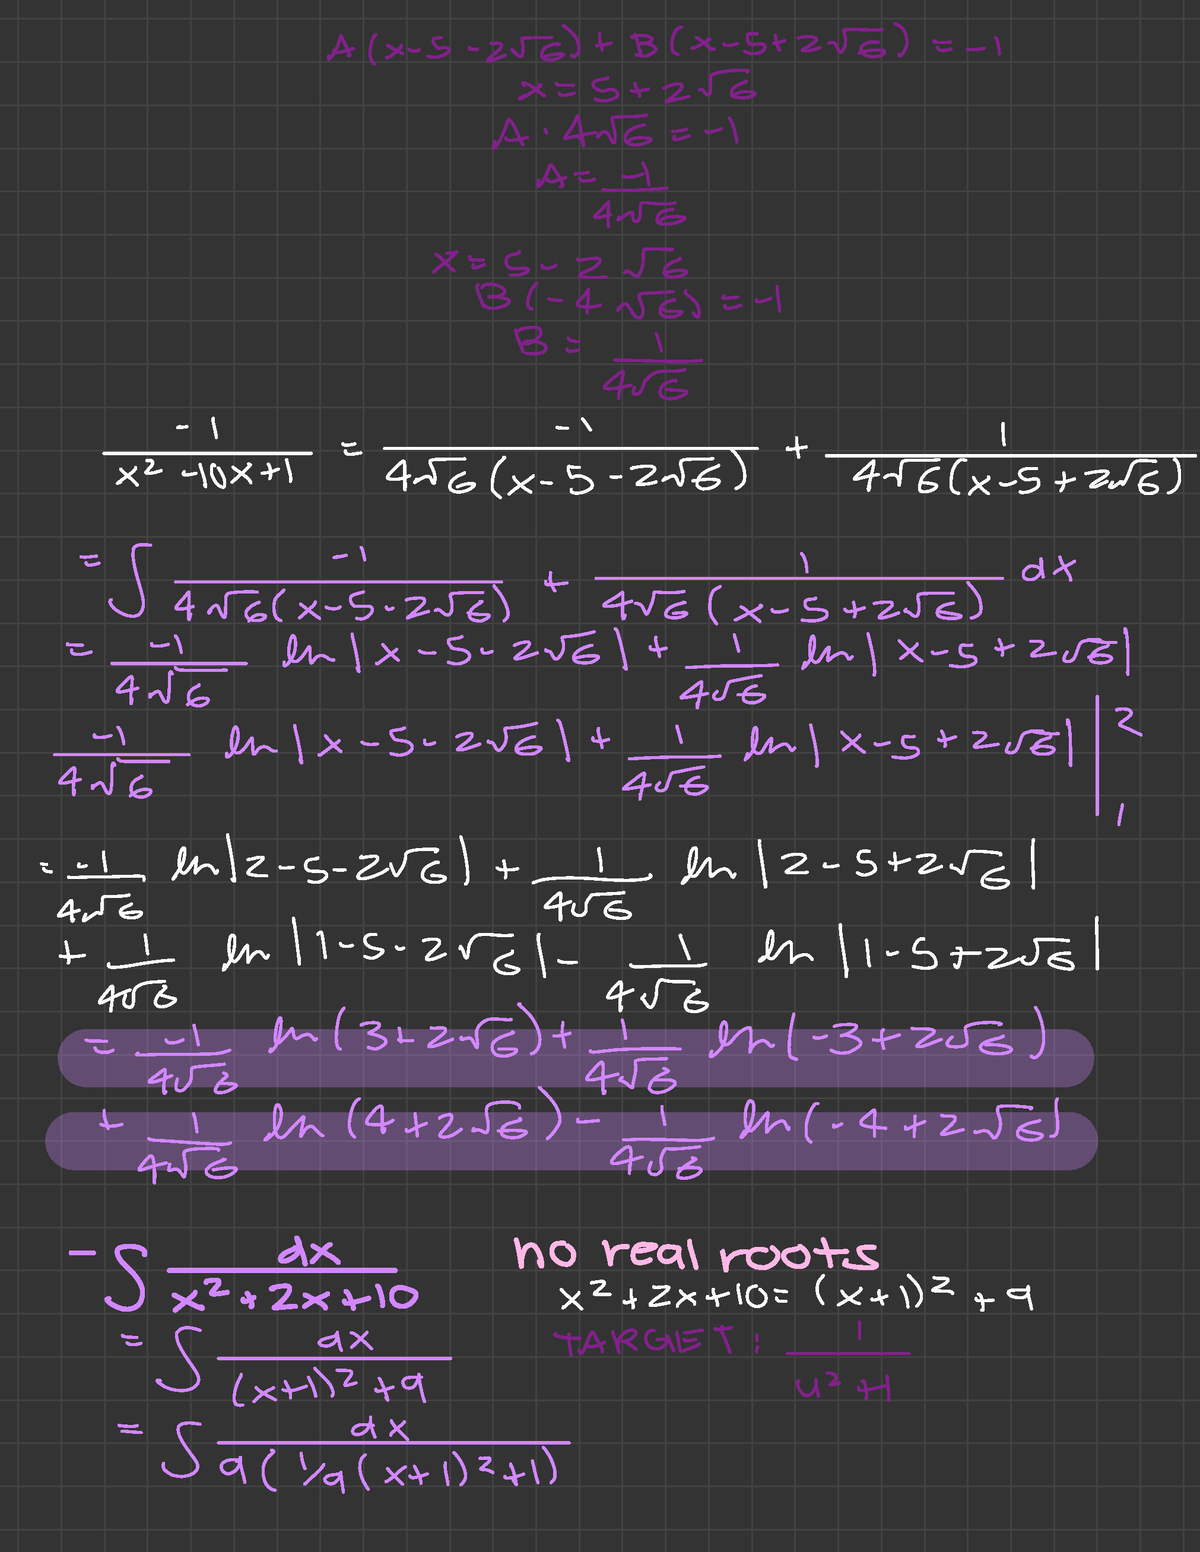 A(x-5-2√6)+B(x-5+2√6)=-1
x=5+2√6
A·4√6=-1
A=-1/4√6
x=5-2√6
B(-4√6)=-1
B=1/4√6
-1/(x²-10x+1) = -1/(4√6(x-5-2√6)) + 1/(4√6(x-5+2√6))
=∫ -1/(4√6(x-5-2√6)) + 1/(4√6(x-5+2√6)) dx
= -1/4√6 ln|x-5-2√6| + 1/4√6 ln|x-5+2√6|
-1/4√6 ln|x-5-2√6| + 1/4√6 ln|x-5+2√6| |₁²
= -1/4√6 ln|2-5-2√6| + 1/4√6 ln|2-5+2√6|
+ 1/4√6 ln|1-5-2√6| - 1/4√6 ln|1-5+2√6|
= -1/4√6 ln(3+2√6) + 1/4√6 ln(-3+2√6)
+ 1/4√6 ln(4+2√6) - 1/4√6 ln(-4+2√6)
-∫ dx/(x²+2x+10) no real roots
x²+2x+10=(x+1)²+9
=∫ dx/((x+1)²+9) TARGET: 1/(u²+1)
=∫ dx/(9(1/9(x+1)²+1))